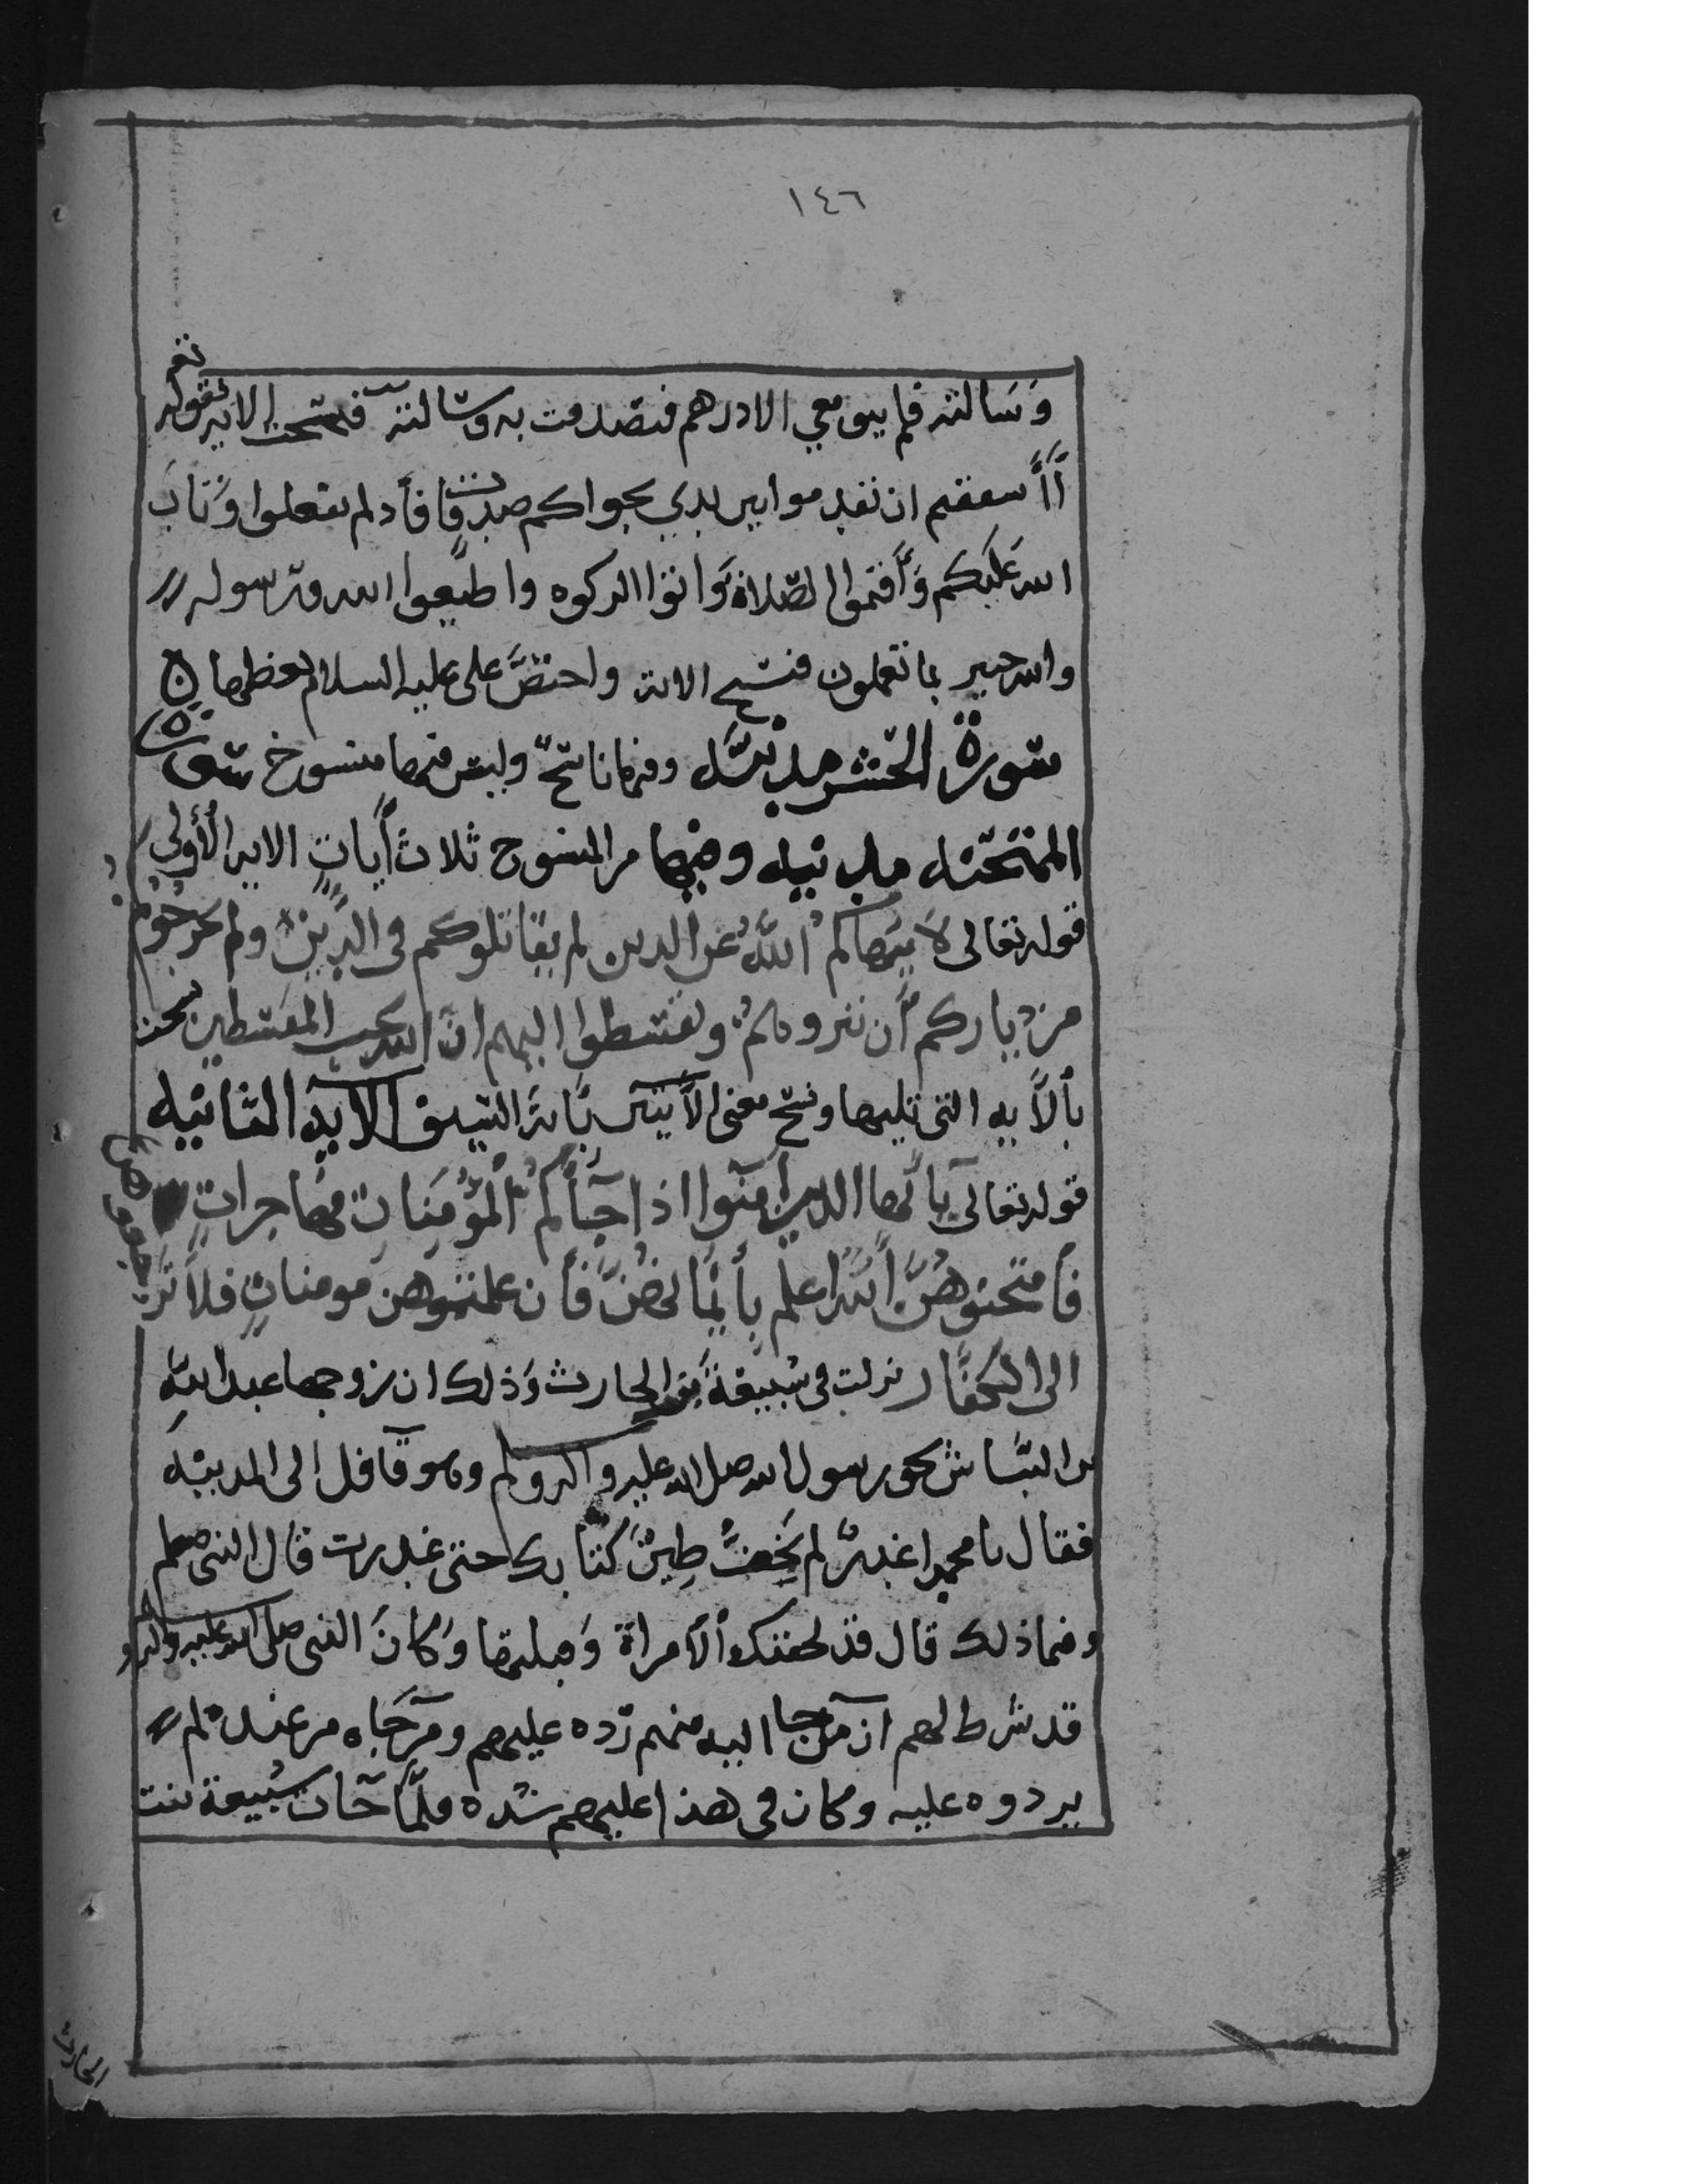 ١٤٦
وسالته فلم يبق معي الا درهم فتصدقت به وسالته فنسخت الايه بقوله تعـ
أأشفقتم ان تقدموا بين يدي نجواكم صدقات فأذ لم تفعلوا وتاب
الله عليكم وأقيموا الصلاة واتوا الزكوه واطيعوا الله ورسوله
والله خبير بما تعملون فنسخ الاية واختص علي عليه السلام بفظلها
سورة الحشر مدنيه وفيها ناسخ وليس فيها منسوخ سورة
الممتحنه مدنيه وفيها من المنسوخ ثلاث أيات الايه الأولى
قوله تعالى لا ينهاكم الله عن الذين لم يقاتلوكم فى الدين ولم يخرجوكم
من دياركم أن تبروهم وتقسطوا اليهم ان الله يحب المقسطين نسخت
بألأيه التى تليها ونسخ معنى الأيتين بأية السيف الايه الثانيه
قوله تعالى يأيها الذين امنوا اذا جأكم ألمؤمنات مهاجرات
فأمتحنوهن ألله اعلم بأيمانهن فأن علمتموهن مومنات فلا تر جعوهن
الى الكفار نزلت فى سبيعة بنت الحارث وذلك ان زوجها عبد الله
بن النباش لحق رسول الله صلى الله عليه واله وسلم وهو قافل الى المدينه
فقال يا محمد اغدر لم يخف طين كتابك حتى غدرت قال النبى صلعم
وفيما ذلك قال قد لحقتك ألامراة وقبلتها وكان النبى صلى الله عليه واله و
قد شرط لهم ان من جا اليه منهم رده عليهم ومن جاه من عنده لم
يردوه عليه وكان فى هذا عليهم شده فلما جات سبيعة بنت
الحارث